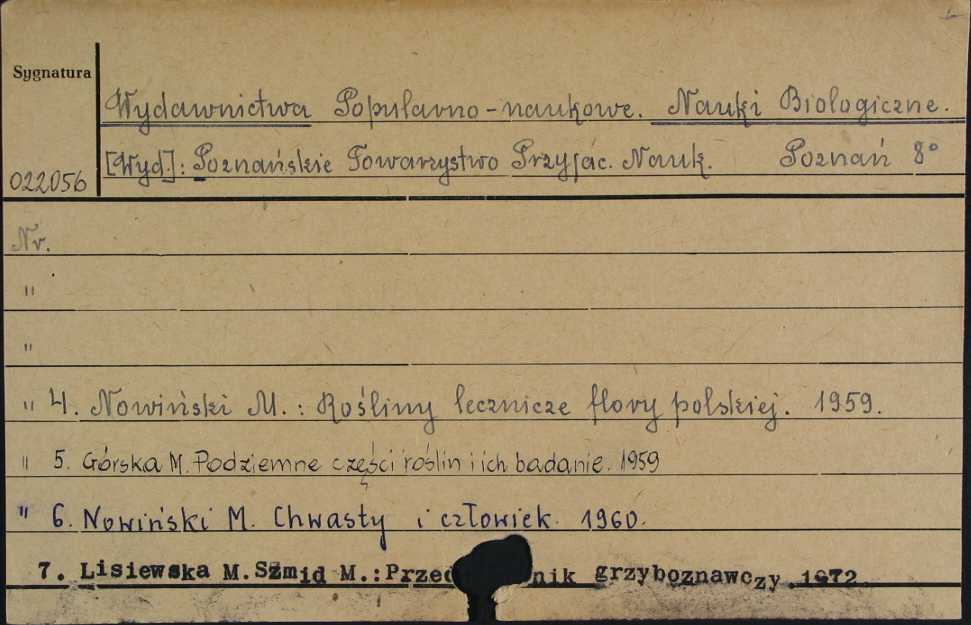 Sygnatura
Wydawnictwa Popularno-naukowe. Nauki Biologiczne.
[Wyd.]: Poznańskie Towarzystwo Przyjac. Nauk. Poznań 8°
022056
Nr.
"
"
" 4. Nowiński M.: Rośliny lecznicze flory polskiej. 1959.
" 5. Górska M. Podziemne części roślin i ich badanie. 1959
" 6. Nowiński M. Chwasty i człowiek. 1960.
7. Lisiewska M. Szmid M.: grzyboznawczy .1972